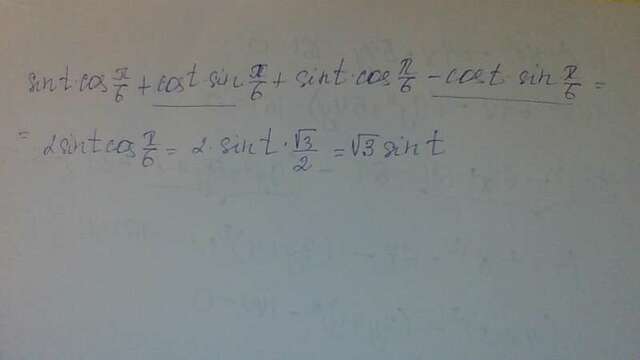 sin t · cos π/6 + cos t sin π/6 + sin t · cos π/6 - cos t · sin π/6 =
= 2 sin t cos π/6 = 2 · sin t · √3/2 = √3 sin t